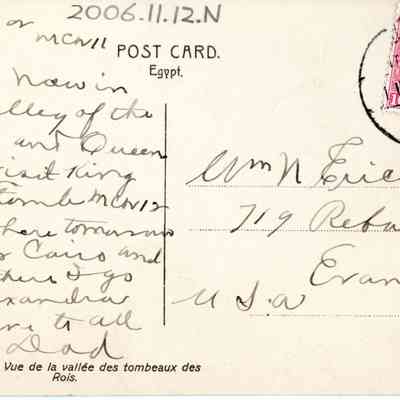 2006.11.12.N
or
Mch 11
POST CARD.
Egypt.
now in
lley of the
and Queen
isit King
tomb Mch 12
here tomorrow
r Cairo and
there I go
exandria
ve to all
Dad
Wm N Eric
719 Reba
Evan
U S. a
Vue de la vallée des tombeaux des
Rois.